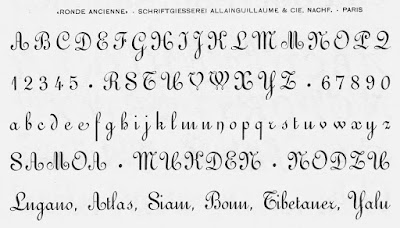 «RONDE ANCIENNE» - SCHRIFTGIESSEREI ALLAINGUILLAUME & CIE. NACHF. - PARIS
A B C D E F G H I J K L M M N O P Q
1 2 3 4 5 . R S T U V W X Y Z . 6 7 8 9 0
a b c d e e f g h i j k l m u n o p q r s t u v w x y z
SAMOA . MUKDEN . NODZU
Lugano, Atlas, Siam, Bonn, Tibetaner, Yalu